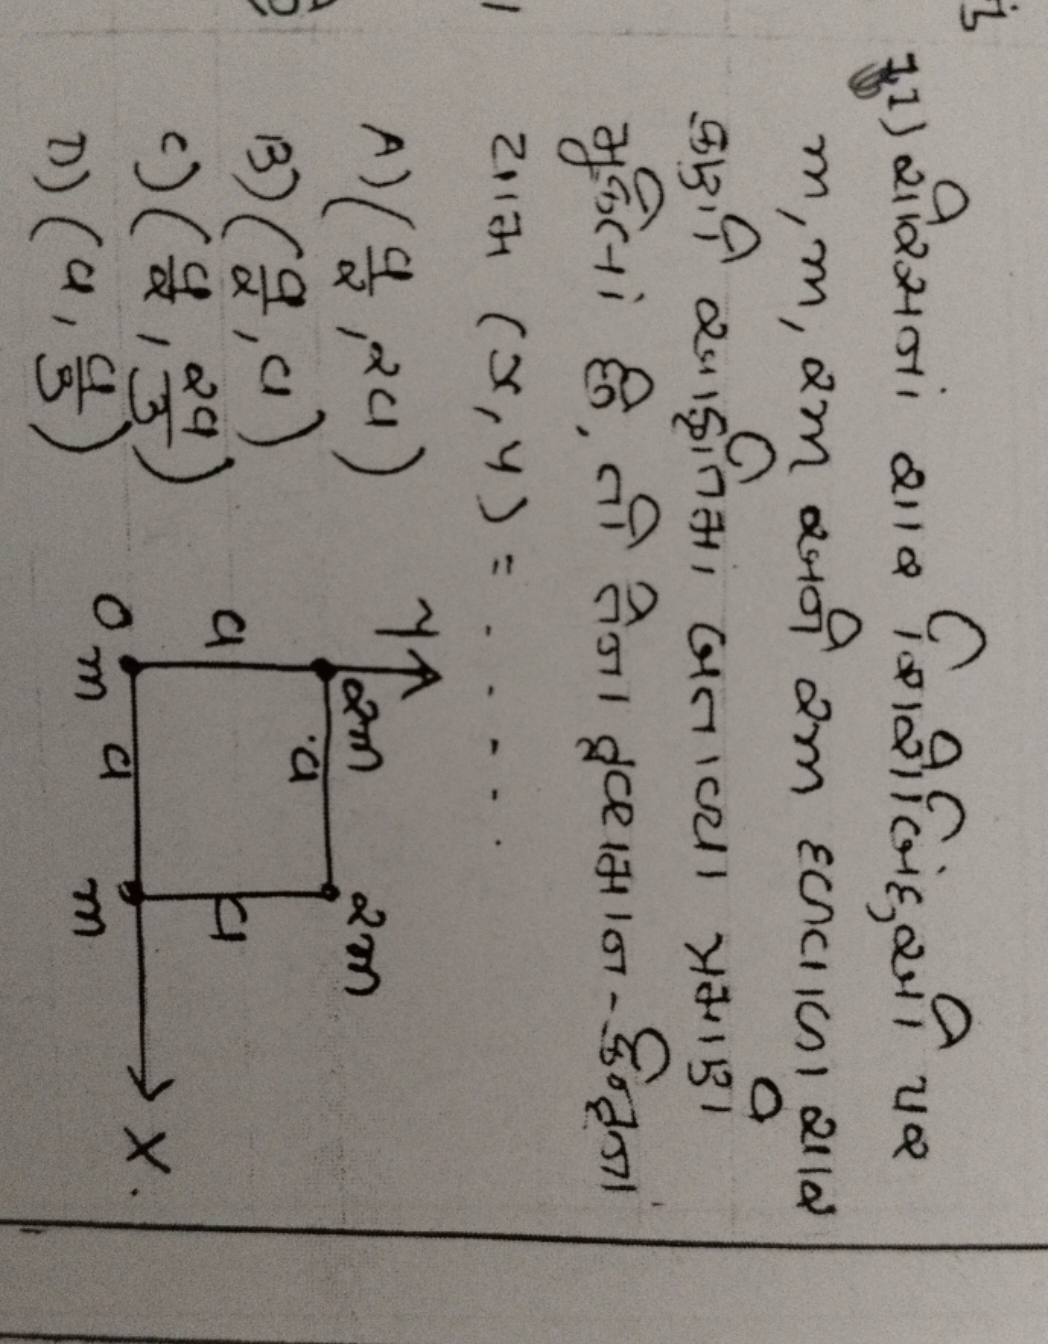 11) ચોરસના ચાર શિરોબિંદુઓ પર
m, m, 2m અને 2m દળવાળા ચાર
કણો આકૃતિમાં બતાવ્યા પ્રમાણે
મૂકેલાં છે, તો તેના દ્રવ્યમાન-કેન્દ્રના
યામ (x, y) = . . . . .
A) (a/2, 2a)
B) (a/2, a)
C) (a/2, 2a/3)
D) (a, a/3)
Y
2m a 2m
a a
O m a m X